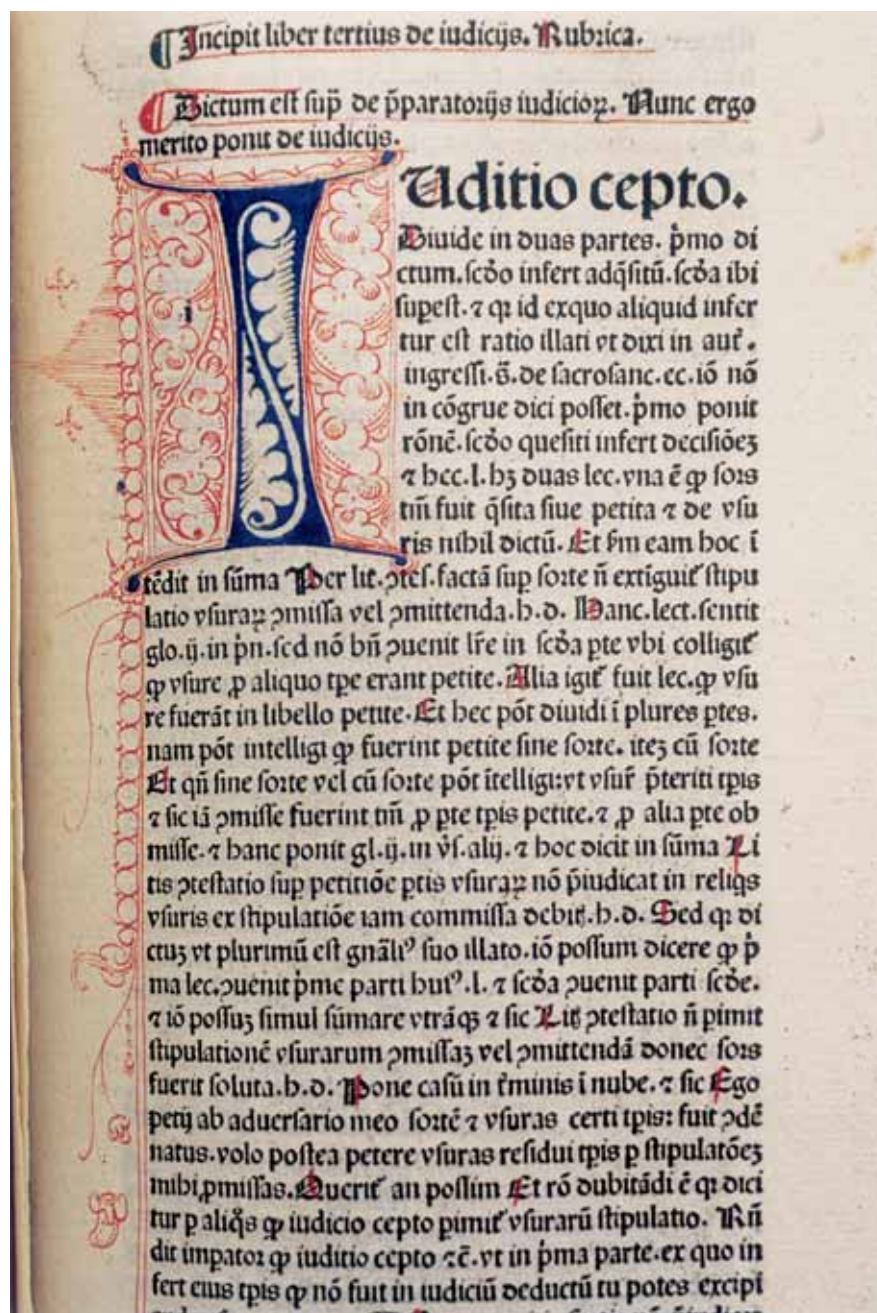 ¶ Incipit liber tertius de iudicijs. Rubrica.
¶ Dictum est sup̄ de p̄paratorijs iudicioꝝ. Nunc ergo
merito ponit de iudicijs.
IUditio cepto.
Diuide in duas partes. pͥmo di
ctum. scḋo infert adq̄sitū. scḋa ibi
supest. ⁊ qꝛ id exquo aliquid infer
tur est ratio illati vt dixi in aut̄.
ingressi. s̄. de sacrosanc. ec. iō nō
in cōgrue dici posset. pͥmo ponit
rōnē. scḋo quesiti infert decisiōeʒ
⁊ hec. l. hʒ duas lec. vna ē ꝙ sors
tm̄ fuit q̄sita siue petita ⁊ de vsu
ris nihil dictū. Et ẜm eam hoc ī
tēdit in sūma Per lit. ꝯtes. factā suꝑ sorte n̄ extīguit᷑ stipu
latio vsuraꝝ ꝯmissa vel ꝯmittenda. h. d. Hanc. lect. sentit
glo. ij. in pͥn. sed nō bn̄ ꝯuenit lr̄e in scḋa ꝑte vbi colligit᷑
ꝙ vsure ꝓ aliquo tꝑe erant petite. Alia igit᷑ fuit lec. ꝙ vsu
re fuerāt in libello petite. Et hec pōt diuidi ī plures ꝑtes.
nam pōt intelligi ꝙ fuerint petite sine sorte. iteʒ cū sorte
Et qn̄ sine sorte vel cū sorte pōt ītelligi: vt vsur̄ p̄teriti tꝑis
⁊ sic iā ꝯmisse fuerint tm̄ ꝓ ꝑte tꝑis petite. ⁊ ꝓ alia ꝑte ob
misse. ⁊ hanc ponit gl. ij. in v̉s. alij. ⁊ hoc dicit in sūma Li
tis ꝯtestatio suꝑ petitiōe ꝑtis vsuraꝝ nō p̄iudicat in reliq̄s
vsuris ex stipulatiōe iam commissa debit᷑. h. d. Sed qꝛ di
ctuʒ vt plurimū est gn̄aliꝰ suo illato. iō possum dicere ꝙ pͥ
ma lec. ꝯuenit pͥme parti huiꝰ. l. ⁊ scḋa ꝯuenit parti scḋe.
⁊ iō possuʒ simul sūmare vtrāqʒ ⁊ sic Lit᷑ ꝯtestatio n̄ ꝑimit
stipulationē vsurarum ꝯmissaʒ vel ꝯmittendā donec sors
fuerit soluta. h. d. Pone casū in t̄minis ī nube. ⁊ sic Ego
petij ab aduersario meo sortē ⁊ vsuras certi tꝑis: fuit ꝯdē
natus. volo postea petere vsuras residui tꝑis ꝑ stipulatōeʒ
mihi ꝓmissas. Querit᷑ an possim Et rō dubitādi ē qꝛ dici
tur ꝑ aliq̄s ꝙ iudicio cepto ꝑimit᷑ vsurarū stipulatio. Rn̄
dit impator ꝙ iuditio cepto ⁊c̄. vt in pͥma parte. ex quo in
fert eius tꝑis ꝙ nō fuit in iudiciū deductū tu potes excipi